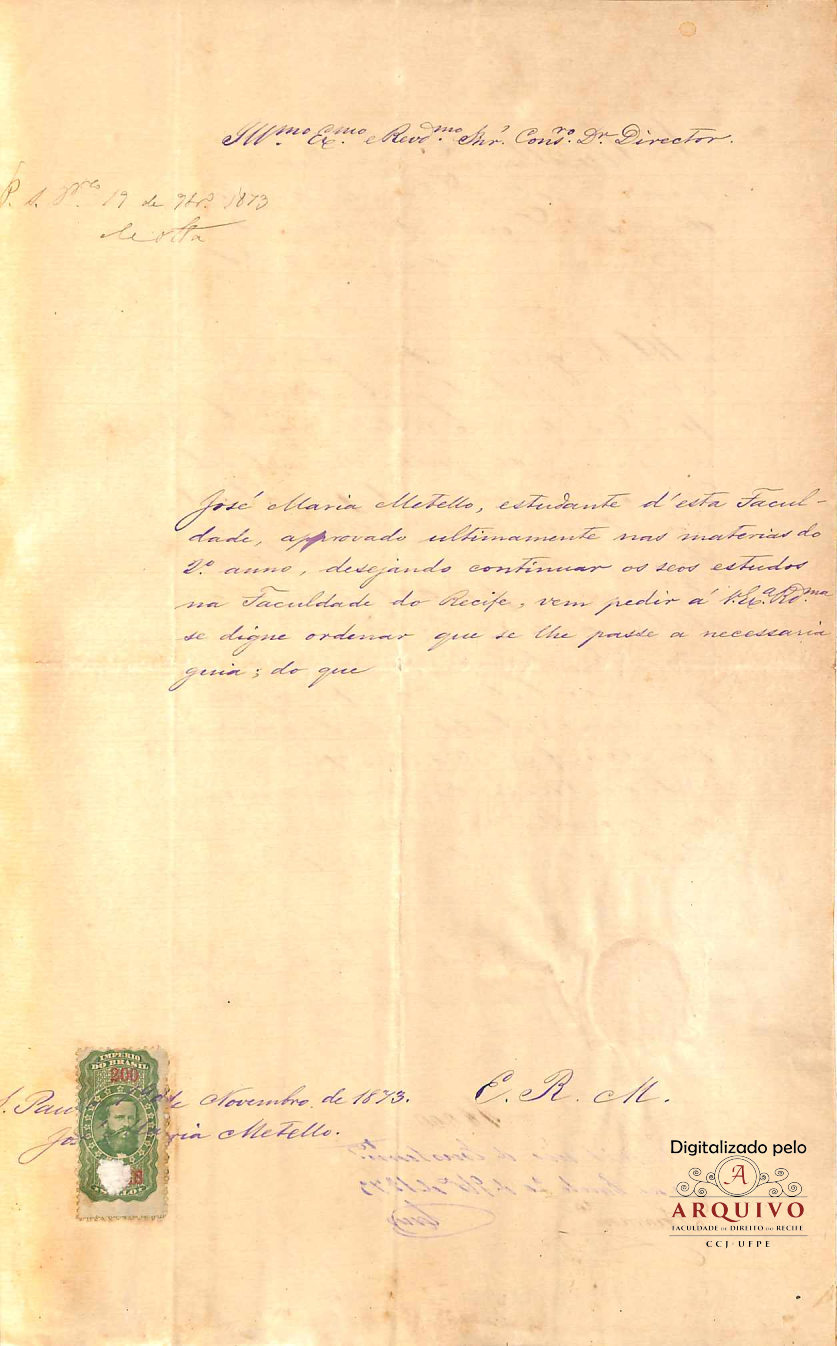 Ill.mo Ex.mo e Revd.mo Snr. Cons.ro Dr. Director.
19 de 9br.º 1873
José Maria Metello, estudante d'esta Facul-
dade, approvado ultimamente nas materias do
2.º anno, desejando continuar os seos estudos
na Faculdade do Recife, vem pedir á V. Ex.a Rd.ma
se digne ordenar que se lhe passe a necessaria
guia; do que
IMPERIO
DO BRASIL
200
S. Pau de Novembro de 1873.
E. R. M.
Jo ria Metello.
Digitalizado pelo
A
ARQUIVO
FACULDADE DE DIREITO DO RECIFE
CCJ-UFPE